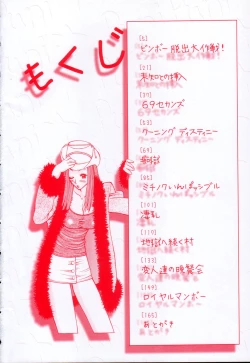 もくじ
[5]
ビンボー脱出大作戦!
[21]
未知との挿入
[37]
69セカンズ
[53]
ターニング ディスティニー
[69]
[85]
ミチノクいんぽっシブル
[101]
[119]
地獄へ続く村
[133]
変人達の晩餐会
[149]
ロイヤルマンボー
[165]
あとがき